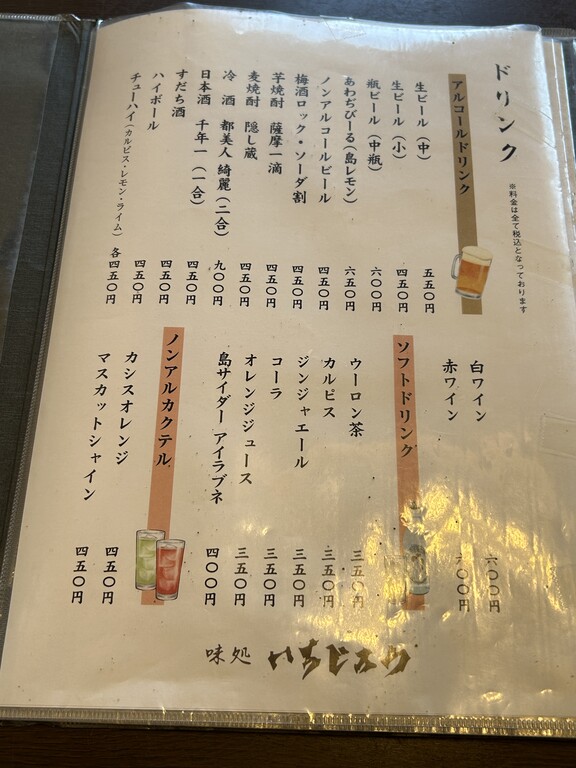 ドリンク
※料金は全て税込となっております
アルコールドリンク
生ビール（中） 五五〇円
生ビール（小） 四五〇円
瓶ビール（中瓶） 六〇〇円
あわぢびーる（島レモン） 六五〇円
ノンアルコールビール 四五〇円
梅酒ロック・ソーダ割 四五〇円
芋焼酎 薩摩一滴 四五〇円
麦焼酎 隠し蔵 四五〇円
冷酒 都美人 綺麗（二合） 九〇〇円
日本酒 千年一（一合） 四五〇円
すだち酒 四五〇円
ハイボール 四五〇円
チューハイ（カルピス・レモン・ライム） 各四五〇円
白ワイン 六〇〇円
赤ワイン 六〇〇円
ソフトドリンク
ウーロン茶 三五〇円
カルピス 三五〇円
ジンジャエール 三五〇円
コーラ 三五〇円
オレンジジュース 三五〇円
島サイダー アイラブネ 四〇〇円
ノンアルカクテル
カシスオレンジ 四五〇円
マスカットシャイン 四五〇円
味処 いちじゅう